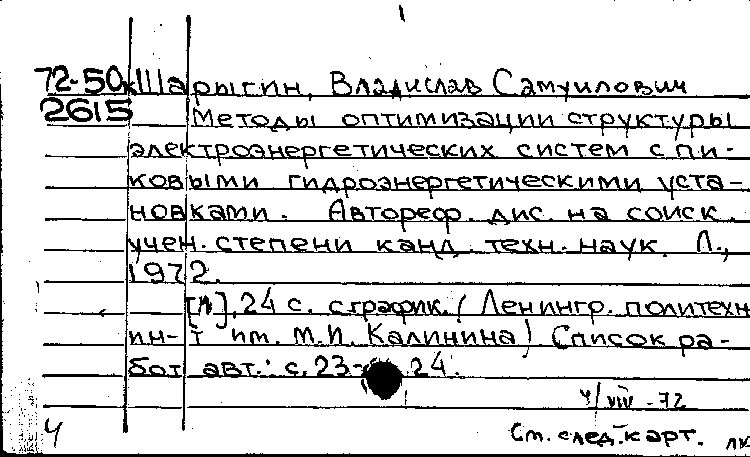 72-50к Шарыгин, Владислав Самуилович
2615 Методы оптимизации структуры
электроэнергетических систем с пи-
ковыми гидроэнергетическими уста-
новками. Автореф. дис. на соиск.
учен. степени канд. техн. наук. Л.,
1972.
[1], 24 с. с график. (Ленингр. политехн
ин-т им. М.И. Калинина) Список ра-
бот авт.: с. 23-24.
4/VIII-72
Ч См. след. карт. лк